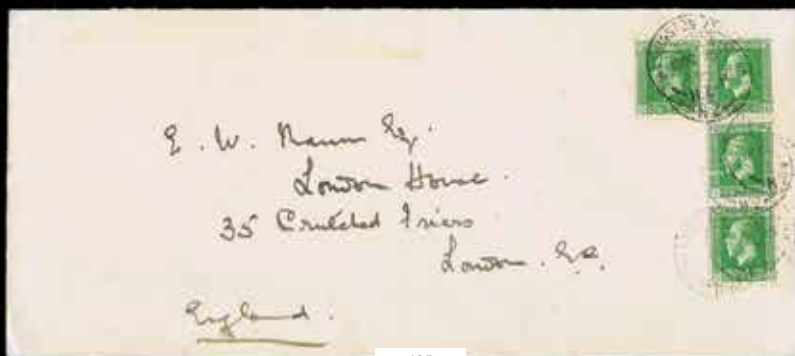 E. W. Mann Esq.
London House.
35 Crutched Friars
London. E.C.
England.